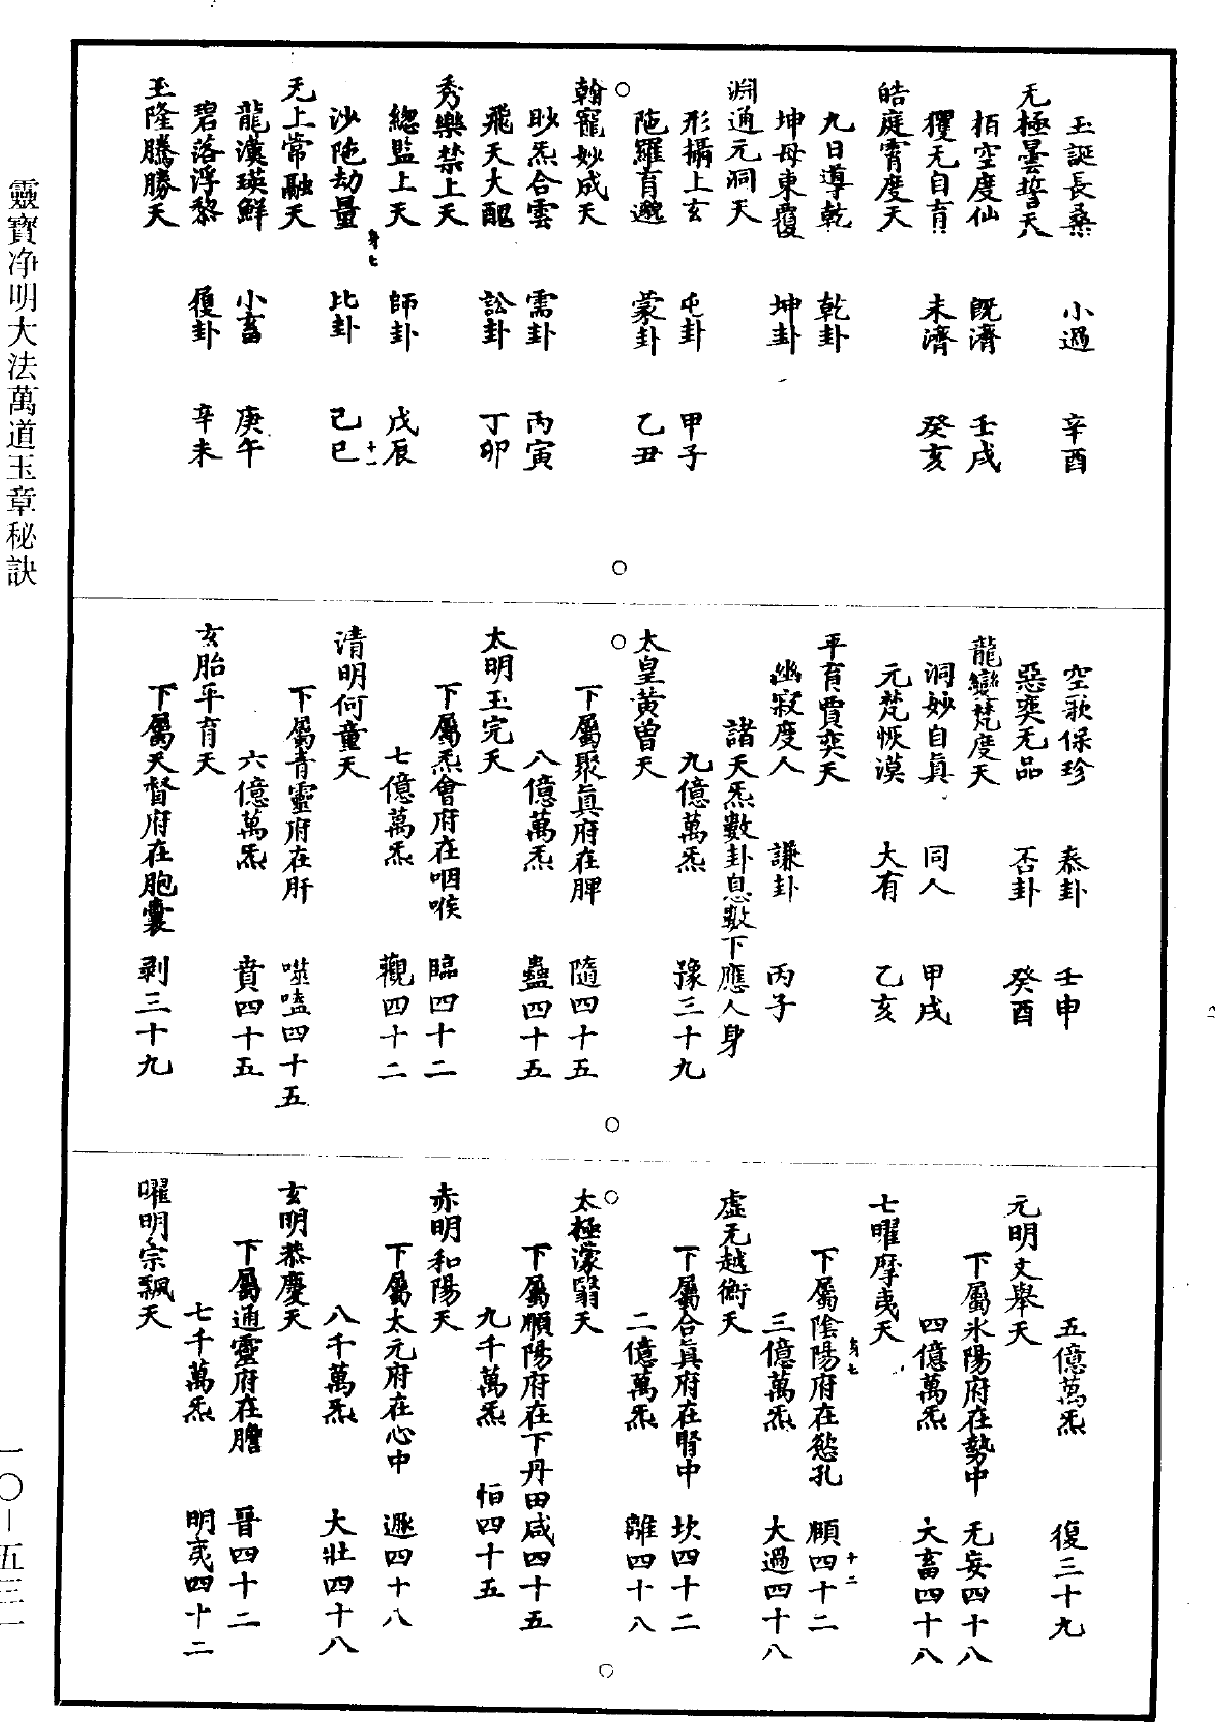 玉誕長桑　小過　辛酉
无極曇誓天
栢空度仙　既濟　壬戌
玃无自育　未濟　癸亥
皓庭霄度天
九日導乾　乾卦
坤母東覆　坤卦
淵通元洞天
形攝上玄　屯卦　甲子
陁羅育邈　蒙卦　乙丑
翰寵妙成天
眇炁合雲　需卦　丙寅
飛天大醜　訟卦　丁卯
秀樂禁上天
緫監上天　師卦　戊辰
身七　十一
沙陁劫量　比卦　己巳
无上常融天
龍漢瑛鮮　小畜　庚午
碧落浮黎　履卦　辛未
玉隆騰勝天
空歌保珍　泰卦　壬申
惡奕无品　否卦　癸酉
龍變梵度天
洞妙自眞　同人　甲戌
元梵恢漠　大有　乙亥
平育賈奕天
幽寂度人　謙卦　丙子
諸天炁數卦息數下應人身
九億萬炁　豫三十九
太皇黄曾天
下屬聚眞府在脾　隨四十五
八億萬炁　蠱四十五
太明玉完天
下屬炁會府在咽喉　臨四十二
七億萬炁　觀四十二
清明何童天
下屬青靈府在肝　噬嗑四十五
六億萬炁　賁四十五
玄胎平育天
下屬天督府在胞囊　剥三十九
五億萬炁　復三十九
元明文舉天
下屬氷陽府在勢中　无妄四十八
四億萬炁　大畜四十八
七曜摩夷天
身七　十二
下屬陰陽府在慾孔　頤四十二
三億萬炁　大過四十八
虚无越衡天
下屬合眞府在腎中　坎四十二
二億萬炁　離四十八
太極濛翳天
下屬順陽府在下丹田　咸四十五
九千萬炁　恒四十五
赤明和陽天
下屬太元府在心中　遯四十八
八千萬炁　大壯四十八
玄明恭慶天
下屬通靈府在膽　晉四十二
七千萬炁　明夷四十二
曜明宗飄天
靈寶净明大法萬道玉章秘訣
一〇—五三一